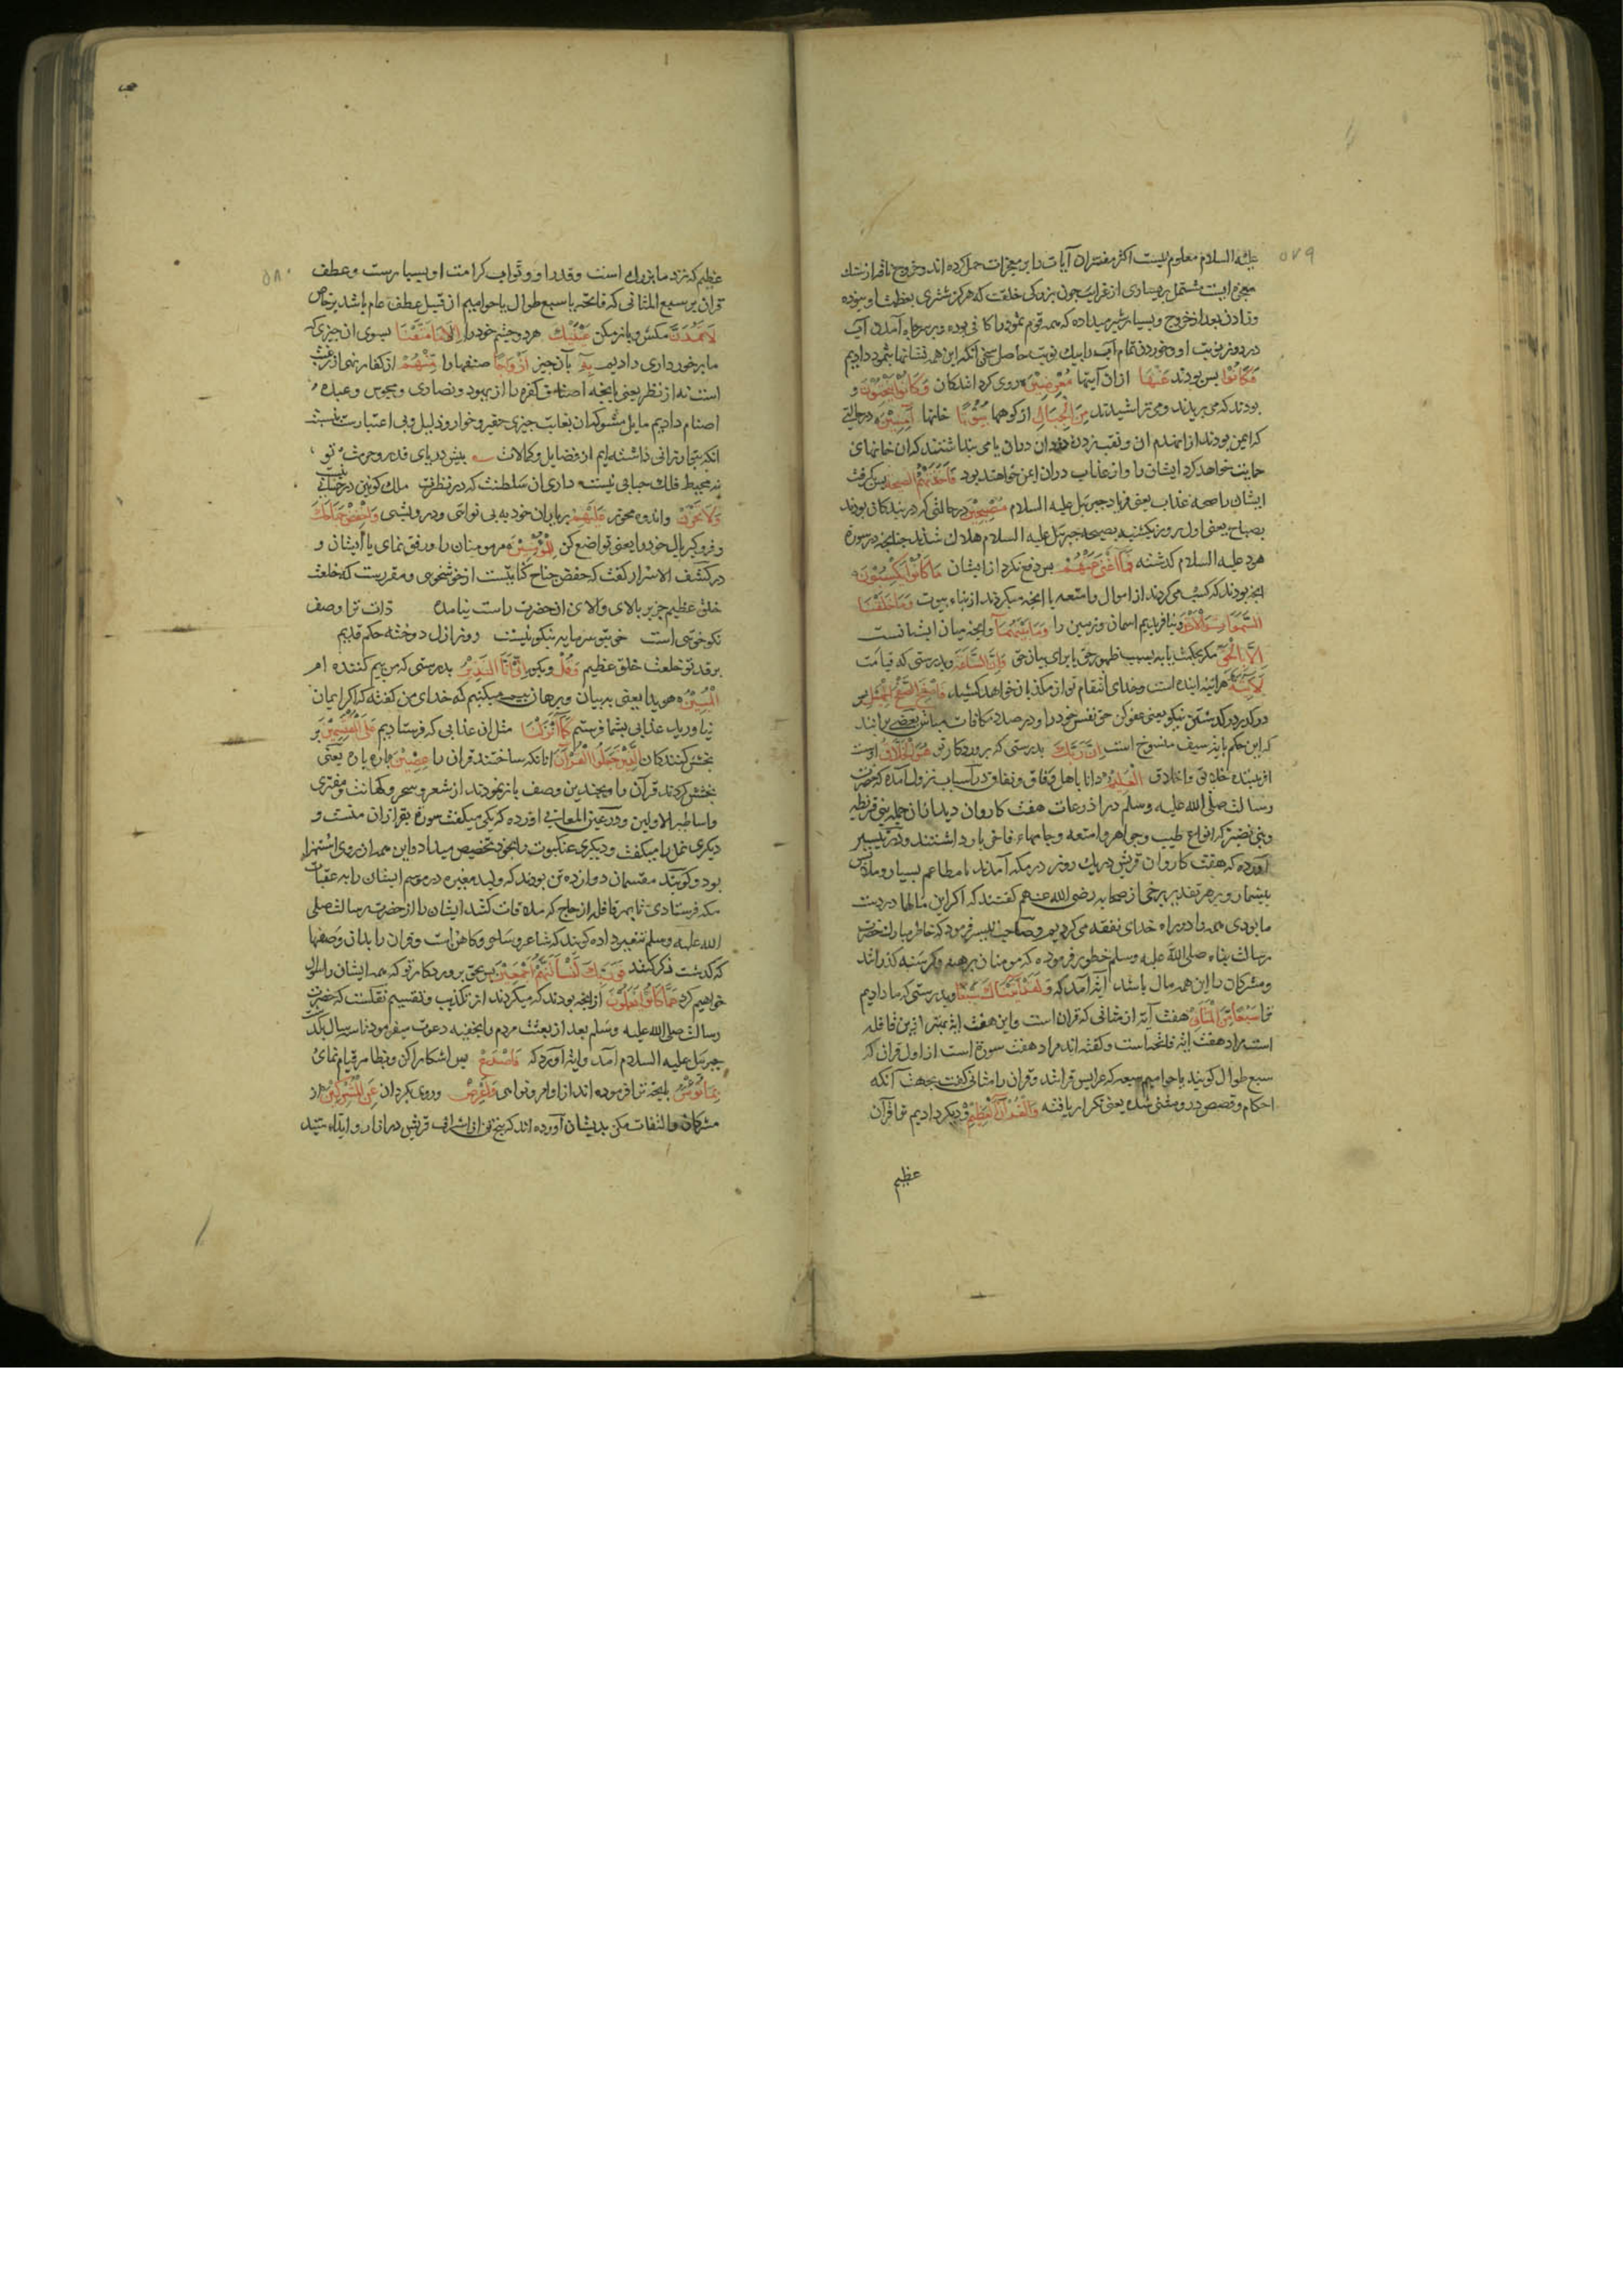 علیه السلام معلوم نیست اکثر مفسران آیات را بر معجزات حمل کرده اند و خروج ناقه از سنک
معجزه ایست مشتمل بر بسیاری از غرایب چون بزرکی خلقت که هرکز شتری بعظمت او نبوده
و زادن بعد از خروج و بسیاری شیر میداده که همه قوم ثمود را کافی بوده و بر سر چاه آمدن آب
در روز نوبت او و خوردن تمام آب را بیک نوبت حاصل سخن آنکه این همه نشانها بثمود دادیم
فَكَانُوا پس بودند عَنْهَا ازان آیتها مُعْرِضِينَ روی کردانندکان وَكَانُوا يَنْحِتُونَ و
بودند که می بریدند و می تراشیدند مِنَ الْجِبَالِ از کوهها بُيُوتًا خانها آمِنِينَ در حالتی
که ایمن بودند از انهدام ان و نقب زدن دزدان دران یا می پنداشتند که ان خانهای
حمایت خواهد کرد ایشان را و از عذاب دران ایمن خواهند بود فَأَخَذَتْهُمُ الصَّيْحَةُ پس کرفت
ایشان را صیحه عذاب یعنی فریاد جبرئیل علیه السلام مُصْبِحِينَ در حالتی که در ایندکان بودند
بصباح یعنی اول روز یکشنبه بصیحه جبرئیل علیه السلام هلاک شدند چنانچه در سوره
هود علیه السلام کذشته فَمَا أَغْنَى عَنْهُمْ پس دفع نکرد از ایشان مَا كَانُوا يَكْسِبُونَ
انچه بودند که کسب می کردند از اموال و امتعه یا انچه میکردند از بناء بیوت وَمَا خَلَقْنَا
السَّمَوَاتِ وَالْأَرْضَ و نیافریدیم اسمان و زمین را وَمَا بَيْنَهُمَا و انچه میان ایشانست
إِلَّا بِالْحَقِّ مکر بحکمت یا به سبب ظهور حق یا برای بیان حق وَإِنَّ السَّاعَةَ و بدرستی که قیامت
لَآتِيَةٌ هر آئینه آینده است و خدای انتقام تو از مکذبان خواهد کشید فَاصْفَحِ الصَّفْحَ الْجَمِيلَ پس
درکذر درکذشتن نیکو یعنی عفو کن حق نفس خود را و در صدد مکافات مباش بعضی برانند
که این حکم بایه سیف منسوخ است إِنَّ رَبَّكَ بدرستی که پروردکار تو هُوَ الْخَلَّاقُ اوست
افریننده خلائق و اخلاق الْعَلِيمُ دانا باهل وفاق و نفاق در اسباب نزول آمده که حضرت
رسالت صلی الله علیه وسلم در اذرعات هفت کاروان دید ازان جهله بنی قریظه
و بنی نضیر که انواع طیب و جواهر و امتعه و جامهاء فاخر بار داشتند و در تیسیر
آورده که هفت کاروان قریش در یک روز در مکه آمدند با مطاعم بسیار و ملابس
بیشمار و بر هر تقدیر برخی از صحابه رضی الله عنهم کفتند که اکر این مالها در دست
ما بودی همه را در راه خدای نفقه می کردیم و صاحب تیسیر فرمود که خاطر مبارک حضرت
رسالت پناه صلی الله علیه وسلم خطور فرموده که مومنان برهنه و کرسنه کذرانند
و مشرکان را این همه مال باشد آیه آمد که وَلَقَدْ آتَيْنَاكَ سَبْعًا و بدرستی که ما دادیم
ترا سَبْعًا مِنَ الْمَثَانِي هفت آیه از مثانی که قران است و این هفت ایه بهتر ازین قافله
است مراد هفت آیه فاتحه است و کفته اند مراد هفت سورة است از اول قران که
سبع طوال کویند یا حوامیم سبعه که عرایس قرانند و قران را مثانی کفت بجهت آنکه
احکام و قصص درو مثنی شده یعنی تکرار یافته وَالْقُرْآنَ الْعَظِيمَ و دیکر دادیم ترا قرآن
عظیم
۵۷۹
عظیم که نزد ما بزرک است و قدر او و ثواب کرامت او بسیارست و عطف
قران بر سبع المثانی که فاتحه یا سبع طوال یا حوامیم از قبیل عطف عام باشد بر خاص
لَا تَمُدَّنَّ مکش و باز مکن عَيْنَيْكَ هر دو چشم خود را إِلَى مَا مَتَّعْنَا بسوی ان چیزی که
ما برخورداری دادیم بِهِ بآن چیز أَزْوَاجًا صنفها را مِنْهُمْ از کفار نهی از رغبت
است نه از نظر یعنی بانچه اصناف کفره را از یهود و نصاری و مجوس و عبده
اصنام دادیم مایل مشو که ان بغایت چیزی حقیر و خوار و ذلیل و بی اعتبارست نسبت
انکه بتو ارزانی داشته ایم از فضایل و کمالات بیش دریای قدر و حرمت تو
نه محیط فلک حبابی نیست داری ان سلطنت که در نظرت ملک کونین در حسابی نیست
وَلَا تَحْزَنْ و اندوه مخور عَلَيْهِمْ بر یاران خود به بی نوایی و درویشی وَاخْفِضْ جَنَاحَكَ
و فرو کیر بال خود را یعنی تواضع کن لِلْمُؤْمِنِينَ مر مومنان را و رفق نمای با ایشان و
در کشف الاسرار کفت که خفض جناح کنایتست از خوشخویی و مقررست که خلعت
خلق عظیم جز بر بالای والای ان حضرت راست نیامده ذات ترا وصف
نکو خویی است خوی تو سرمایه نیکوییست روز ازل دوخته حکم قدیم
بر قد تو خلعت خلق عظیم وَقُلْ و بکو إِنِّي أَنَا النَّذِيرُ بدرستی که من بیم کننده ام
الْمُبِينُ هویدا یعنی به بیان و برهان بیم میکنیم که خدای من کفته که اکر ایمان
نیاورید عذابی بشما فرستم كَمَا أَنْزَلْنَا مثل ان عذابی که فرستادیم عَلَى الْمُقْتَسِمِينَ بر
بخش کنندکان الَّذِينَ جَعَلُوا الْقُرْآنَ انانکه ساختند قران را عِضِينَ پاره پاره یعنی
بخش کردند قرآن را و بچندین وصف باز نمودند از شعر و سحر و کهانت و مفتری
و اساطیر الاولین و در عین المعانی اورده که یکی میکفت سوره بقر ازان منست و
دیکری نمل را میکفت و دیکری عنکبوت را بخود تخصیص میداد و این همه از روی استهزا
بود و کویند مقتسمان دوازده تن بودند که ولید مغیره در موسم ایشان را به عقبات
مکه فرستادی تا بهر قافله از حاج که ملاقات کنند ایشان را از حضرت رسالت صلی
الله علیه وسلم تنفیر داده کویند که شاعر و ساحر و کاهن است و قران را بدان وصفها
که کذشت ذکر کنند فَوَرَبِّكَ لَنَسْأَلَنَّهُمْ أَجْمَعِينَ پس بحق پروردکار تو که همه ایشان را سوال
خواهیم کرد عَمَّا كَانُوا يَعْمَلُونَ از انچه بودند که میکردند از تکذیب و تقسیم نقلست که حضرت
رسالت صلی الله علیه وسلم بعد از بعثت مردم را بخفیه دعوت میفرمود تا سه سال بکذشت
جبرئیل علیه السلام آمد و این آیه آورد که فَاصْدَعْ پس اشکارا کن و بظاهر قیام نمای
بِمَا تُؤْمَرُ بانچه ترا فرموده اند از اوامر و نواهی وَأَعْرِضْ و روی بکردان عَنِ الْمُشْرِكِينَ از
مشرکان و التفات مکن بدیشان آورده اند که پنج تن از اشراف قریش در ازار و ایذاء سید
۵۸۰